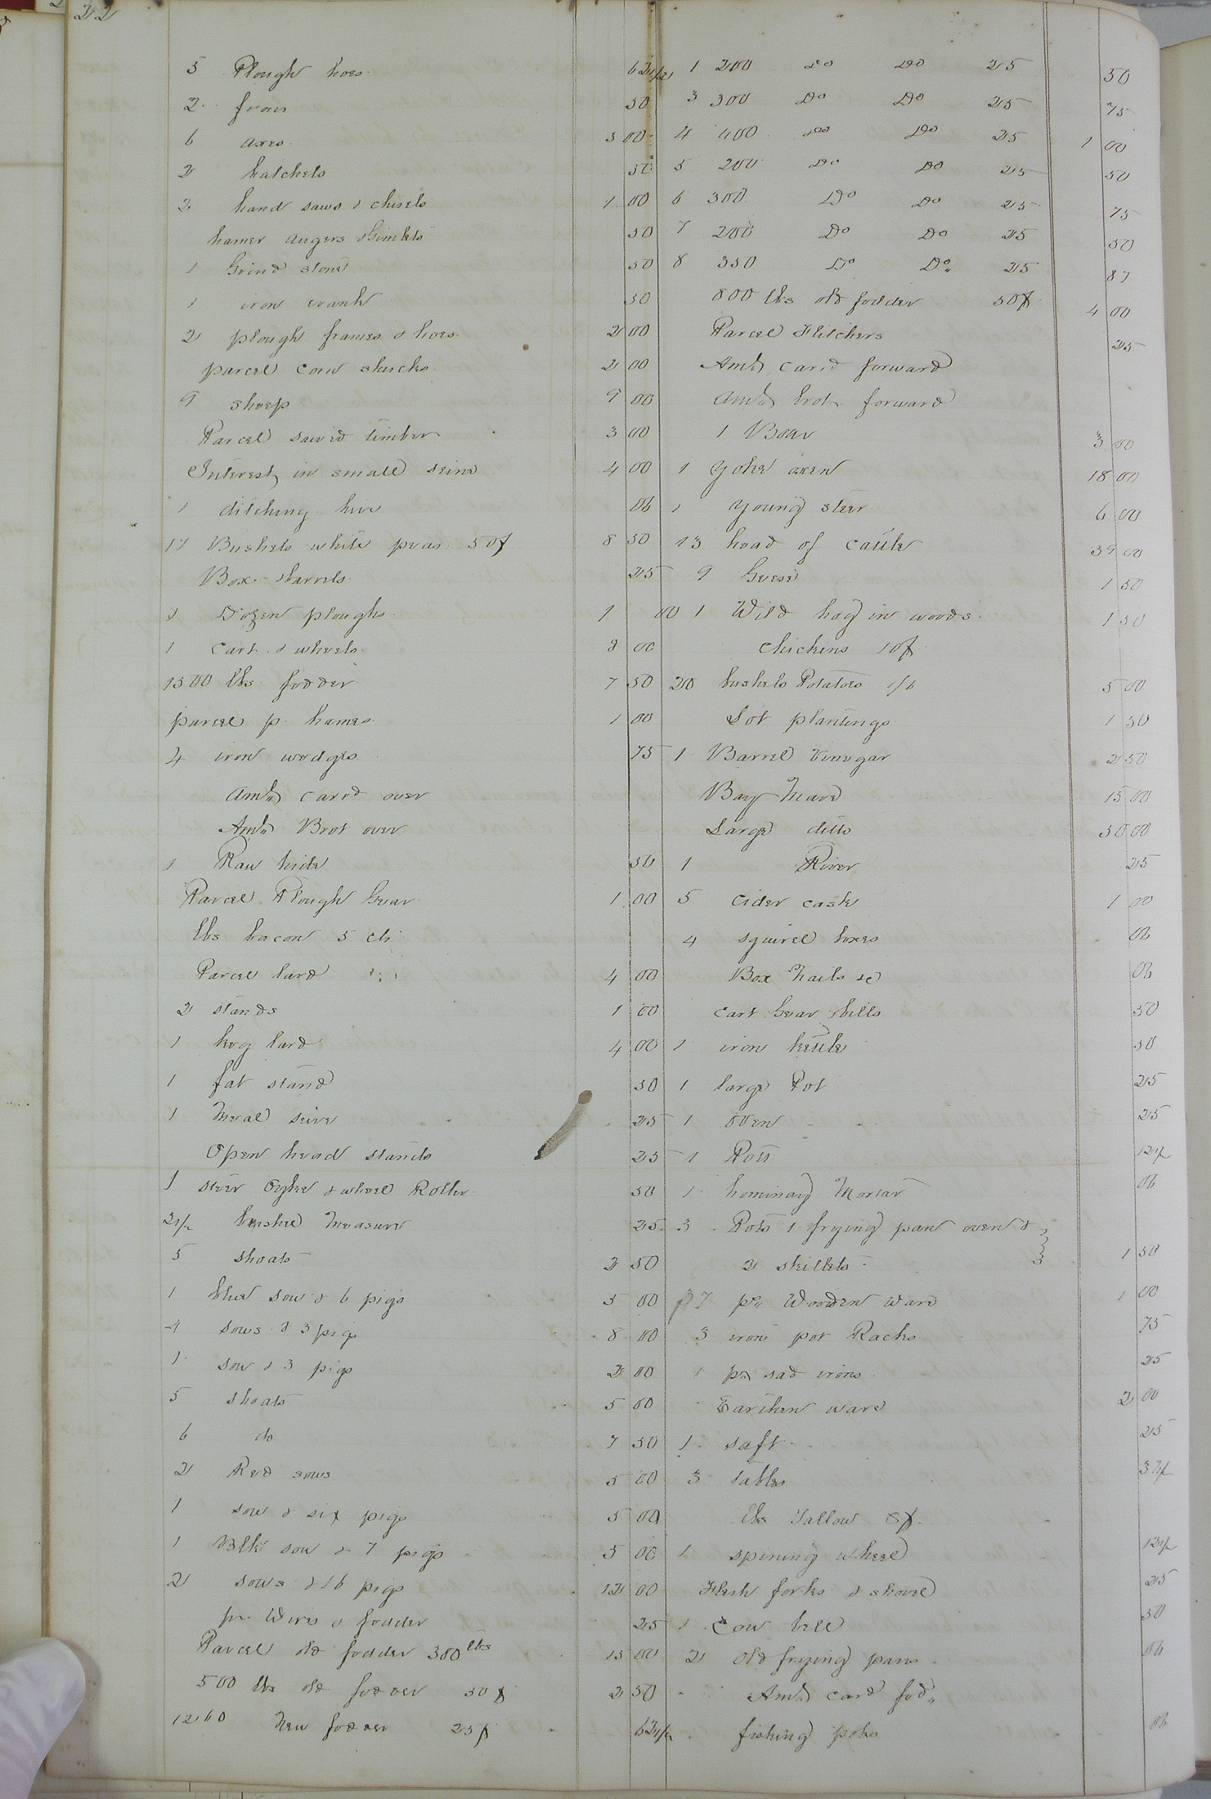 22
5 Plough hoes 62 1/2
2 frows 50
6 axes 3 00
2 hatchets 50
2 hand saws & chisels 1 00
hamer augers & Gimlets 50
1 Grind stone 50
1 iron crank 50
2 plough frames & hoes 2 00
parcel corn shucks 2 00
9 sheep 9 00
Parcel sawed timber 3 00
Interest in small seine 4 00
1 ditching hoe 06
17 Bushels white peas 50¢ 8 50
Box & barrels 25
1 Dozen ploughs 1 00
1 Cart & wheels 8 00
1500 lbs fodder 7 50
parcel p. hames 1 00
4 iron wedges 75
Amt carrd over
Amt Brot over
1 Raw hide 50
Parcel Plough Gear 1 00
lbs bacon 5 cts
Parcel lard 4 00
2 stands 1 00
1 keg lard 4 00
1 fat stand 50
1 Meal seive 25
Open head stands 25
1 steer Yoke & wheel Roller 50
2 1/2 bushel Measure 25
5 shoats 2 50
1 blue sow & 6 pigs 5 00
4 sows & 3 pigs 8 00
1 sow & 3 pigs 2 00
5 shoats 5 00
6 do 7 50
2 Red sows 5 00
1 sow & six pigs 5 00
1 Blk sow & 7 pigs 5 00
2 sows & 16 pigs 12 00
25
Parcel old fodder 300 lbs 15 00
500 lbs old fodder 50¢ 2 50
1260 New fodder 25¢ 62 1/2
1 200 Do Do 25 50
3 300 Do Do 25 75
4 400 Do Do 25 1 00
5 200 Do Do 25 50
6 300 Do Do 25 75
7 200 Do Do 25 50
8 350 Do Do 25 87
800 lbs old fodder 50¢ 4 00
Parcel Flitchers 25
Amt card forward
Amt brot forward
1 Boar 3 00
1 yoke oxen 18 00
1 young steer 6 00
13 head of cattle 39 00
9 Geese 1 50
1 Wild hog in woods 1 50
chickens 10¢
20 bushels Potatoes 1/6 5 00
Lot plantings 1 50
1 Barrel Vinegar 2 50
Bay Mare 15 00
Large ditto 50 00
1 River 25
5 cider cask 1 00
4 squirel boxes 06
Box Nails &c 06
Cart Gear & bitts 50
1 iron kettle 50
1 large Pot 25
1 oven 25
1 Pott 12 1/2
1 hominy Mortar 06
3 Pots 1 frying pan oven &
2 skillets 1 50
7 ps Wooden ware 1 00
3 iron pot Racks 75
1 pr sad irons 25
Earthen ware 2 00
1 saft 25
3 tables 37 1/2
lbs Tallow 8¢
1 spining wheel 12 1/2
Flesh forks & shovel 25
1 Cow bell 50
2 old frying pans 06
Amt card fod.
fishing poles 06